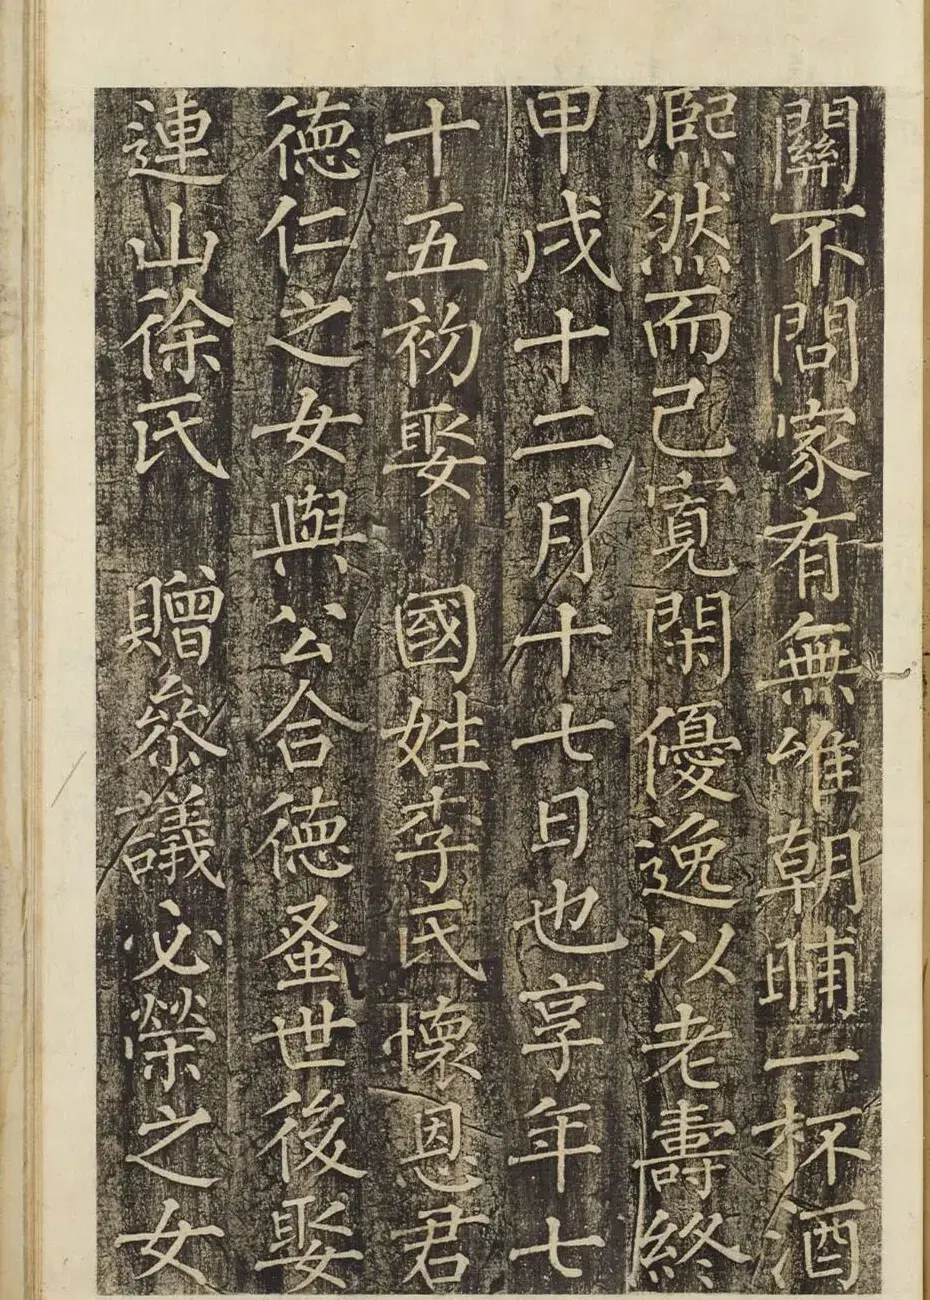 關不問家有無唯朝晡一杯酒
熈然而已寛閑優逸以老壽終
甲戌十二月十七日也享年七
十五初娶 國姓李氏懷恩君
德仁之女與公合德蚤世後娶
連山徐氏 贈叅議必榮之女